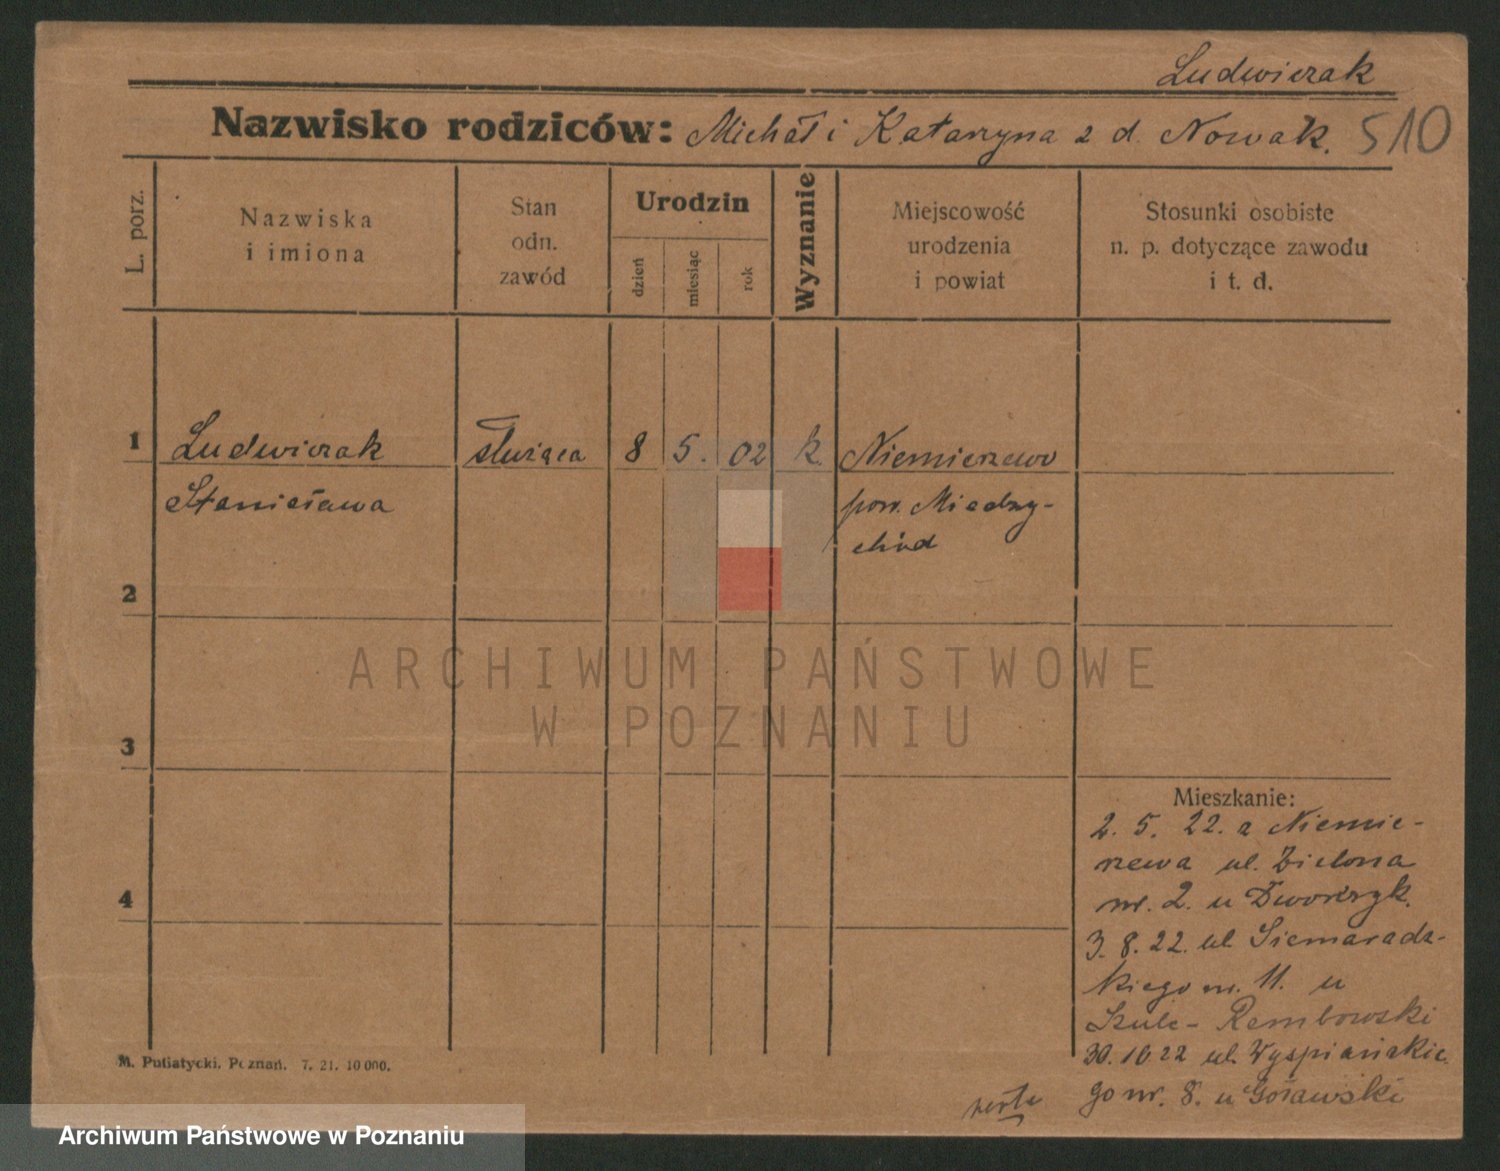 Ludwiczak
Nazwisko rodziców: Michał i Katarzyna z d. Nowak. 510
L. porz.
Nazwiska
i imiona
Stan
odn.
zawód
Urodzin
dzień
miesiąc
rok
Wyznanie
Miejscowość
urodzenia
i powiat
Stosunki osobiste
n. p. dotyczące zawodu
i t. d.
1 Ludwiczak służąca 8 5. 02 k. Niemierzewo
Stanisława pow. Miedzy-
chód
2
3
4
Mieszkanie:
2. 5. 22. z Niemie-
rzewa ul. Zielona
nr. 2. u Dworczyk.
3. 8. 22. ul Siemaradz-
kiego nr. 11. u
Szulc-Rembowski
30.10 22 ul. Wyspiańskie-
go nr. 8. u Gorawski
verte
M. Putiatycki, Poznań. 7. 21. 10 000.
ARCHIWUM PAŃSTWOWE
W POZNANIU
Archiwum Państwowe w Poznaniu